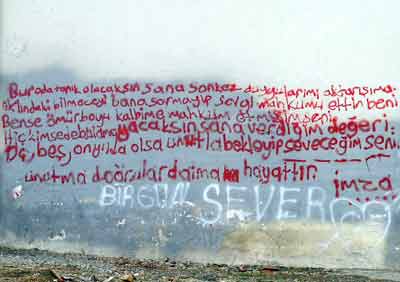 Burada tanık olacaksın sana sonkez duygularımı aktarışıma.
Aklındaki bilmeceyi bana sormayıp sevgi mahkumu ettin beni
Bense ömürboyu kalbime mahkum etmişim seni
Hiçkimsede bulamayacaksın sana verdiğim değeri.
Üç, beş, onyılda olsa umutla bekleyip seveceğim seni.
unutma doğrular daima hayattır imza
BİRGÜL SEVER